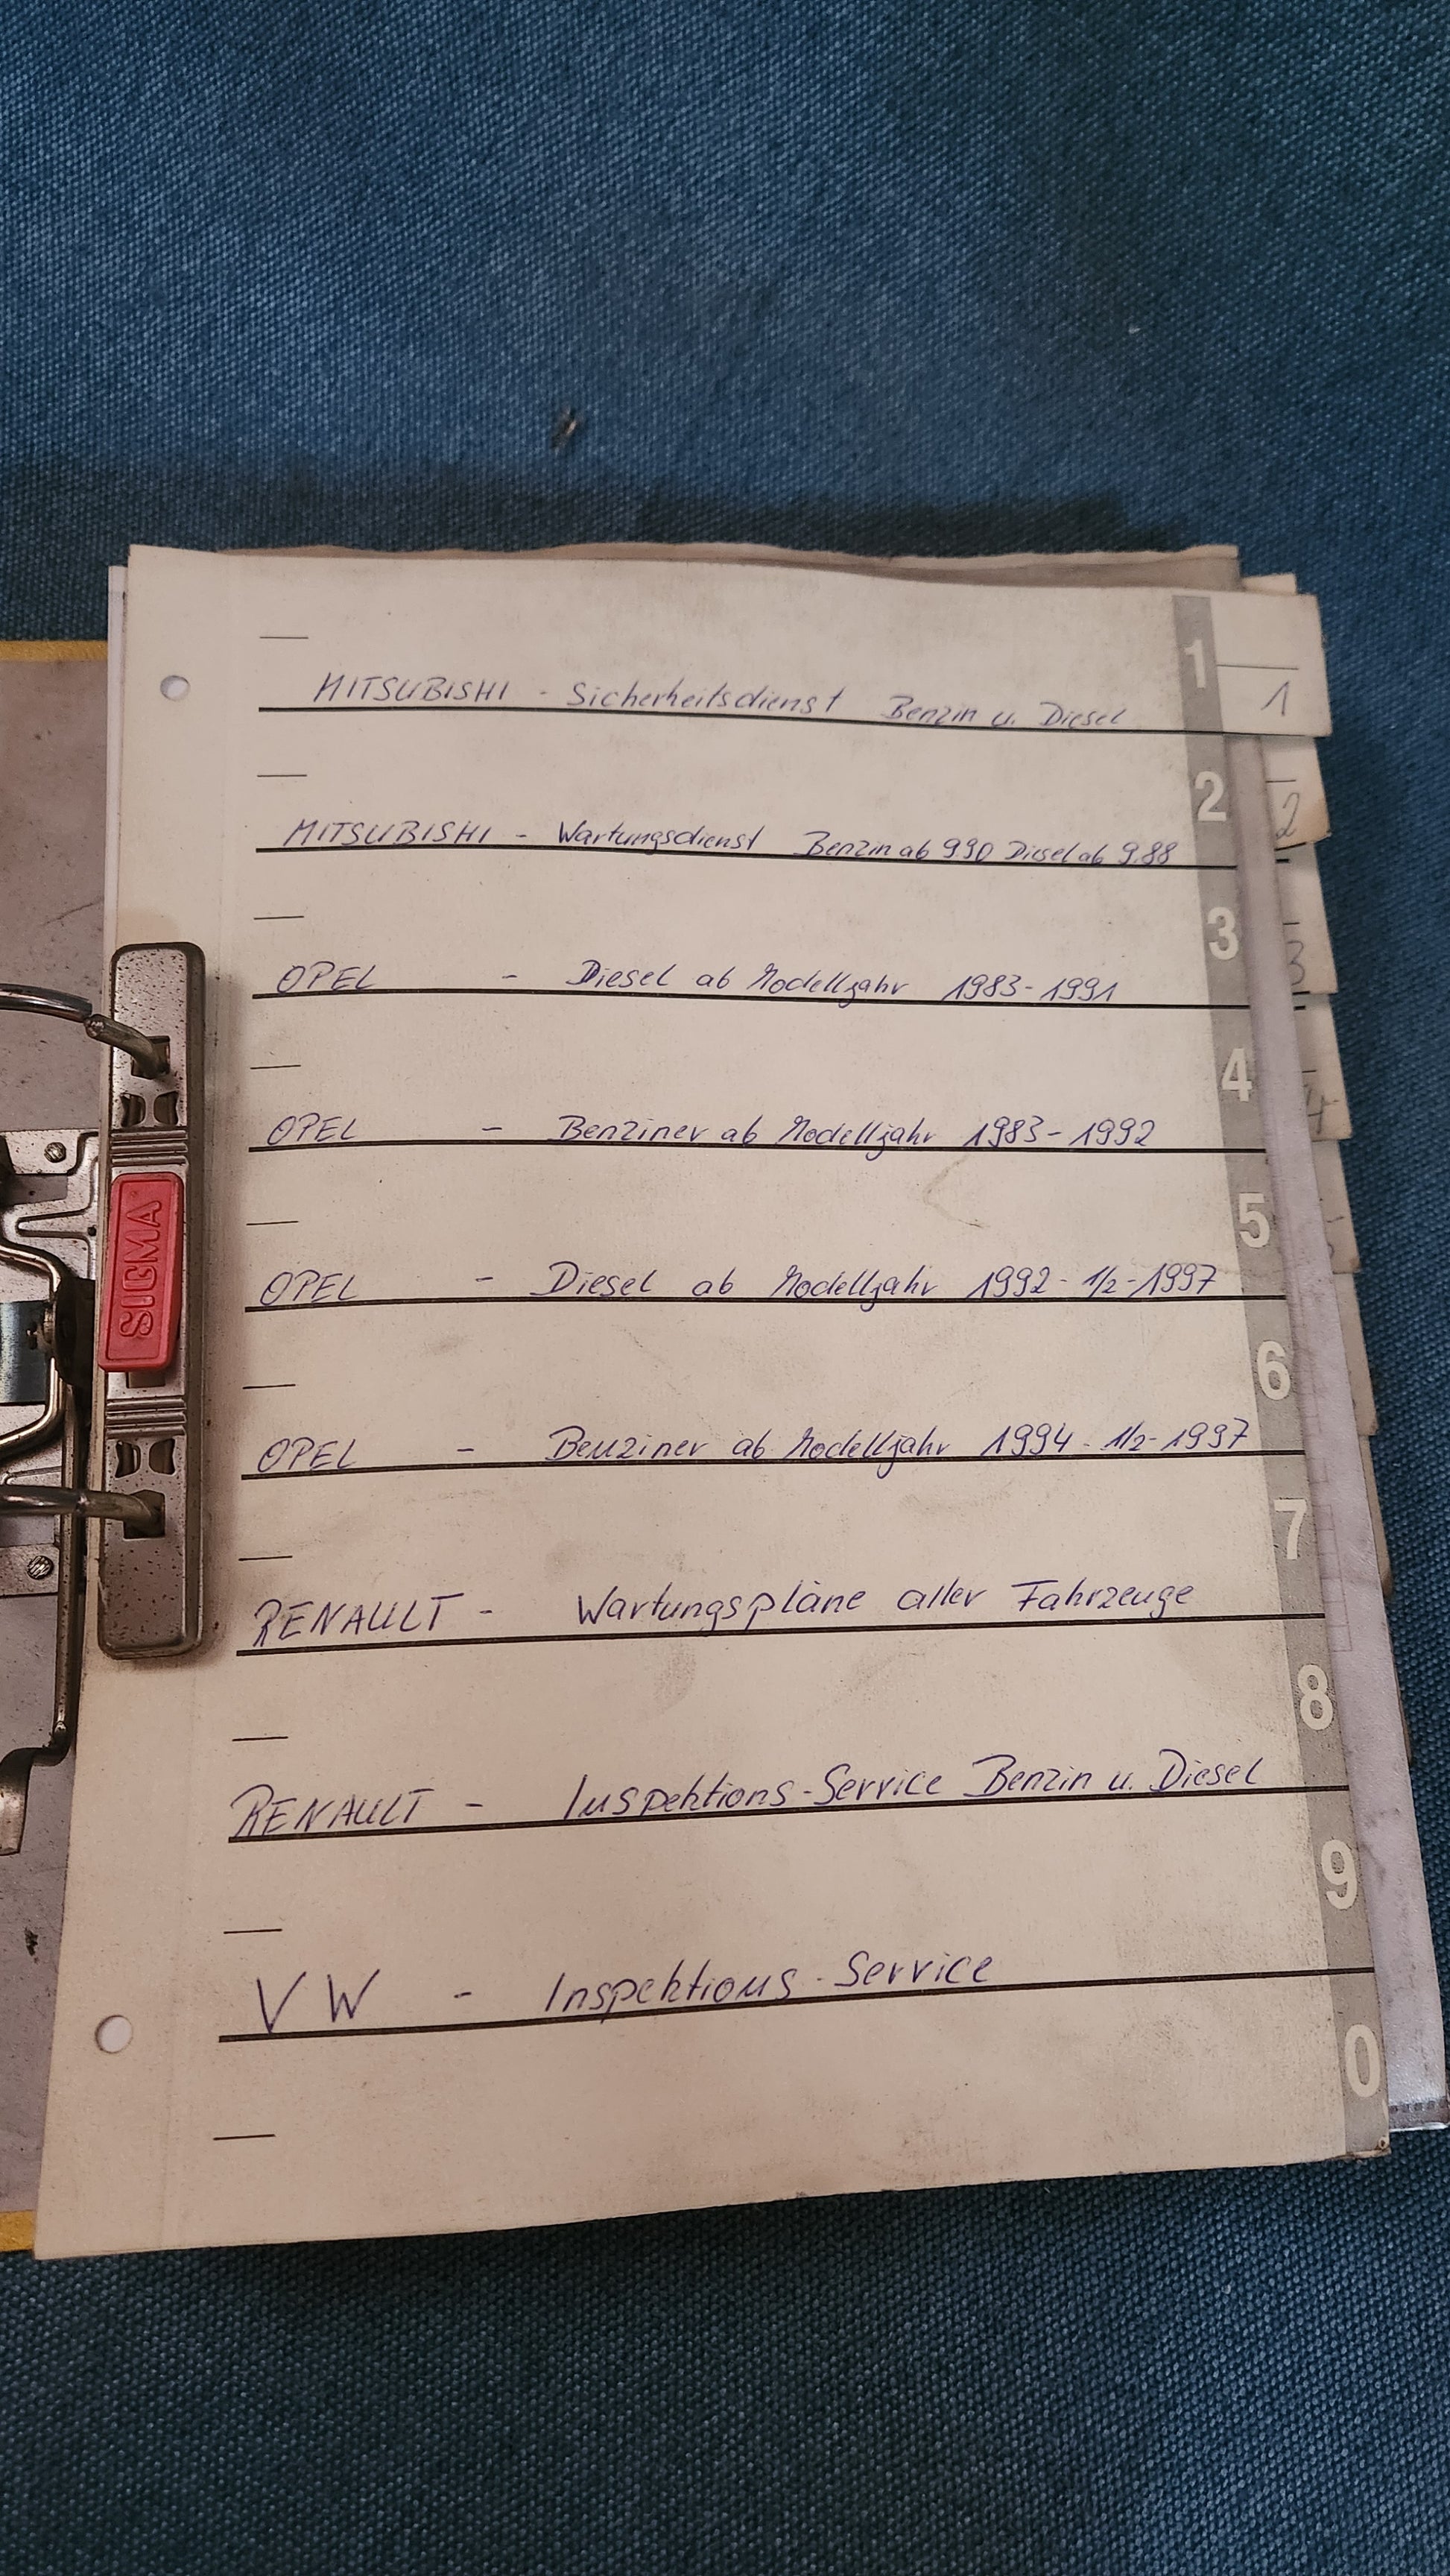 1
MITSUBISHI - Sicherheitsdienst Benzin u. Diesel
1
2
MITSUBISHI - Wartungsdienst Benzin ab 9.90 Diesel ab 9.88
2
3
OPEL - Diesel ab Modelljahr 1983-1991
3
4
OPEL - Benziner ab Modelljahr 1983-1992
4
5
OPEL - Diesel ab Modelljahr 1992-1/2-1997
SIGMA
6
OPEL - Benziner ab Modelljahr 1994-1/2-1997
7
RENAULT - Wartungspläne aller Fahrzeuge
8
RENAULT - Inspektions-Service Benzin u. Diesel
9
VW - Inspektions-Service
0